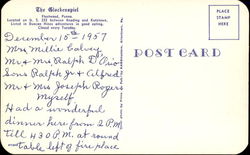 The Glockenspiel
Fleetwood, Penna.
Located on U. S. 222 between Reading and Kutztown.
Listed in Duncan Hines adventures in good eating.
Closed every Tuesday.
PLACE
STAMP
HERE
POST CARD
December 15th 1957
Mrs. Millie Calvey,
Mr & Mrs Ralph D'Orio
Sons Ralph Jr & Alfred
Mr & Mrs Joseph Rogers
Myself
Had a wonderful
dinner here from 2 P.M.
till 4:30 P.M. at round
table left of fire place